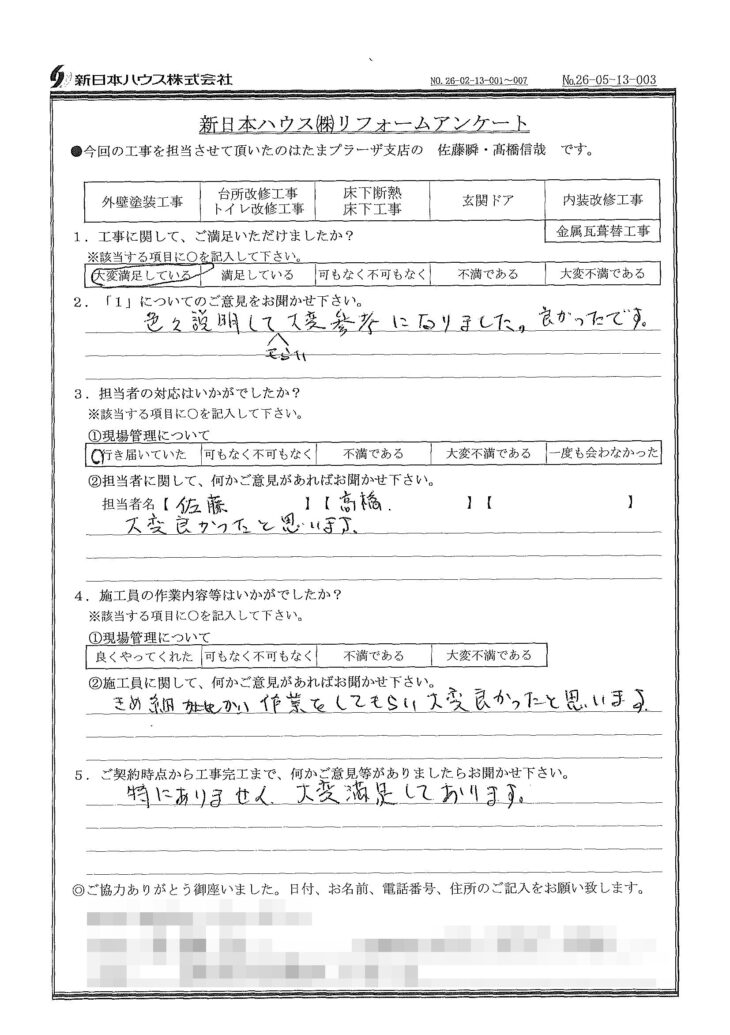 新日本ハウス株式会社 NO.26-02-13-001～007 No.26-05-13-003
新日本ハウス㈱リフォームアンケート
●今回の工事を担当させて頂いたのはたまプラーザ支店の 佐藤瞬・髙橋信哉 です。
外壁塗装工事 台所改修工事 トイレ改修工事 床下断熱 床下工事 玄関ドア 内装改修工事
金属瓦葺替工事
１．工事に関して、ご満足いただけましたか？
※該当する項目に○を記入して下さい。
大変満足している 満足している 可もなく不可もなく 不満である 大変不満である
２．「１」についてのご意見をお聞かせ下さい。
色々説明して大変参考になりました。良かったです。
もらい
３．担当者の対応はいかがでしたか？
※該当する項目に○を記入して下さい。
①現場管理について
行き届いていた 可もなく不可もなく 不満である 大変不満である 一度も会わなかった
②担当者に関して、何かご意見があればお聞かせ下さい。
担当者名【 佐藤 】【 高橋. 】【 】
大変良かったと思います。
４．施工員の作業内容等はいかがでしたか？
※該当する項目に○を記入して下さい。
①現場管理について
良くやってくれた 可もなく不可もなく 不満である 大変不満である
②施工員に関して、何かご意見があればお聞かせ下さい。
きめ細かい作業をしてもらい大変良かったと思います。
５．ご契約時点から工事完工まで、何かご意見等がありましたらお聞かせ下さい。
特にありません 大変満足しております。
◎ご協力ありがとう御座いました。日付、お名前、電話番号、住所のご記入をお願い致します。